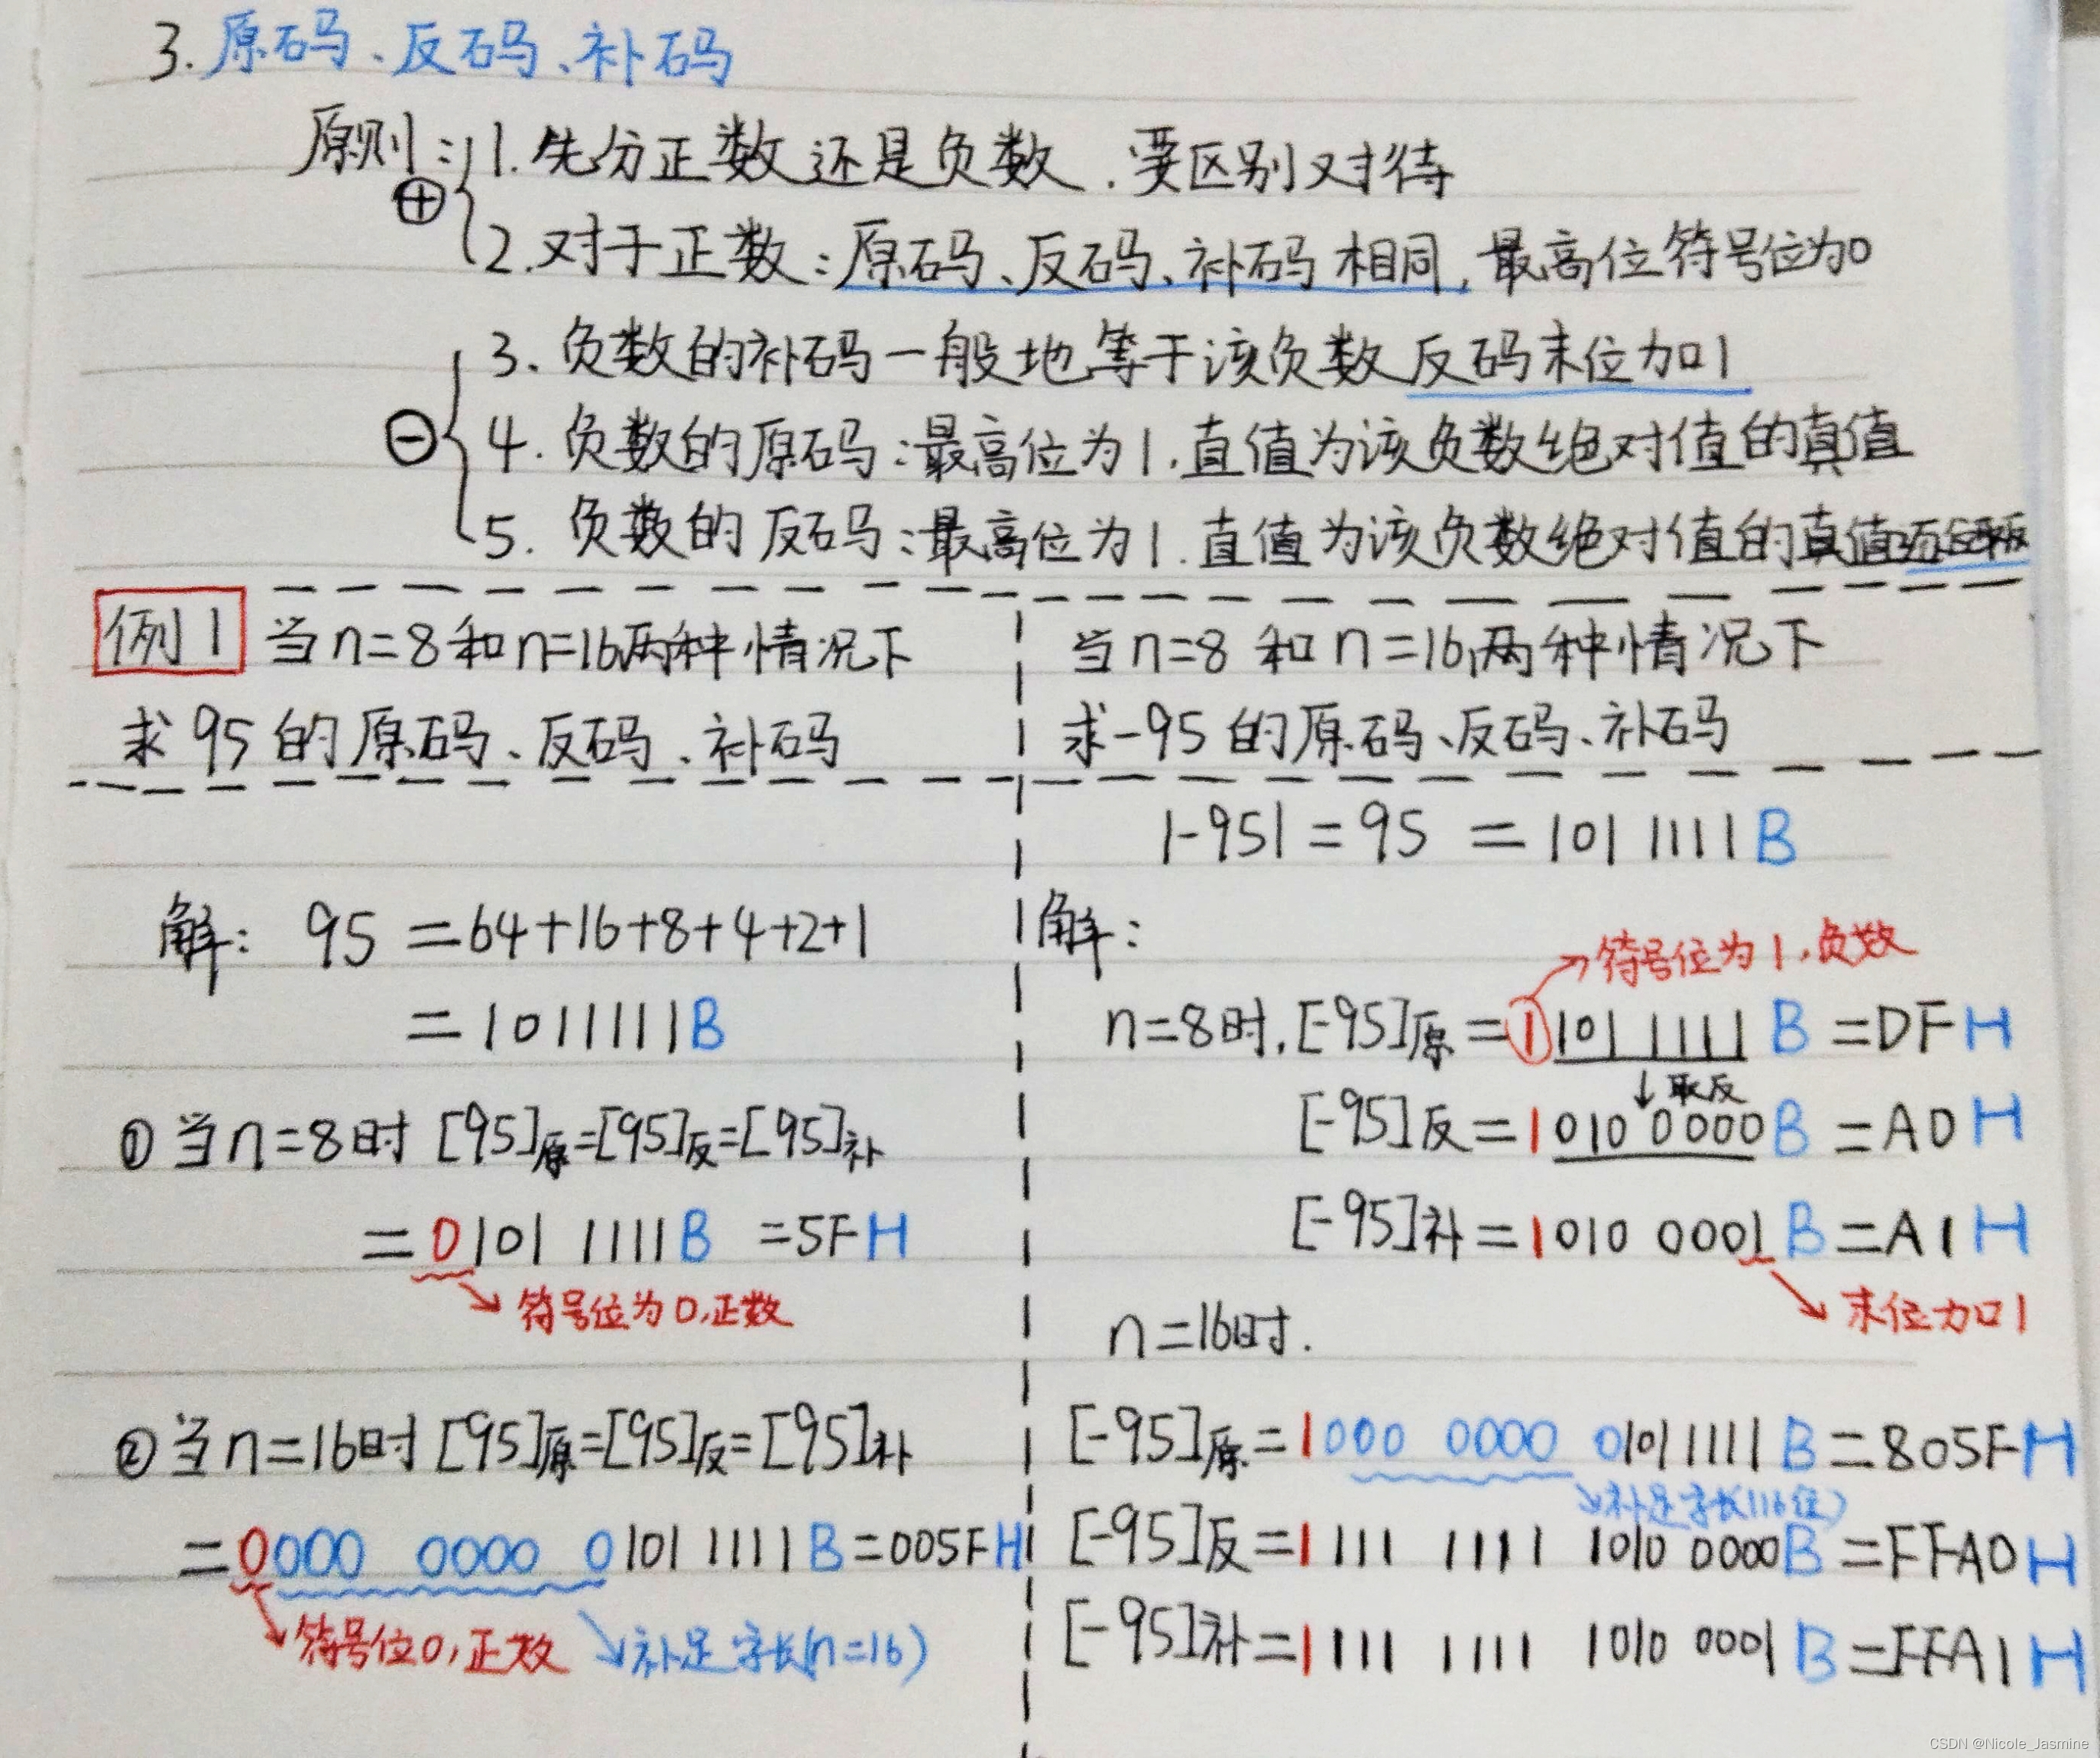 3. 原码、反码、补码
原则: 1. 先分正数还是负数. 要区别对待
⊕
2. 对于正数: 原码、反码、补码相同, 最高位符号位为0
3. 负数的补码一般地等于该负数反码末位加1
⊖
4. 负数的原码: 最高位为1. 直值为该负数绝对值的真值
5. 负数的反码: 最高位为1. 直值为该负数绝对值的真值
例1 当n=8和n=16两种情况下
求95的原码、反码、补码
解: 95 =64+16+8+4+2+1
=1011111B
① 当n=8时 [95]原=[95]反=[95]补
=0101 1111B =5FH
符号位为0,正数
② 当n=16时 [95]原=[95]反=[95]补
=0000 0000 0101 1111B=005FH
符号位0,正数 补足字长(n=16)
当n=8和n=16两种情况下
求-95的原码、反码、补码
|-95|=95 =101 1111B
解:
符号位为1,负数
n=8时,[-95]原=1101 1111B =DFH
↓取反
[-95]反=1010 0000B =A0H
[-95]补=1010 0001B=A1H
末位加1
n=16时.
[-95]原=1000 0000 0101 1111B=805FH
补足字长(16位)
[-95]反=1111 1111 1010 0000B=FFA0H
[-95]补=1111 1111 1010 0001B=FFA1H
CSDN @Nicole_Jasmine